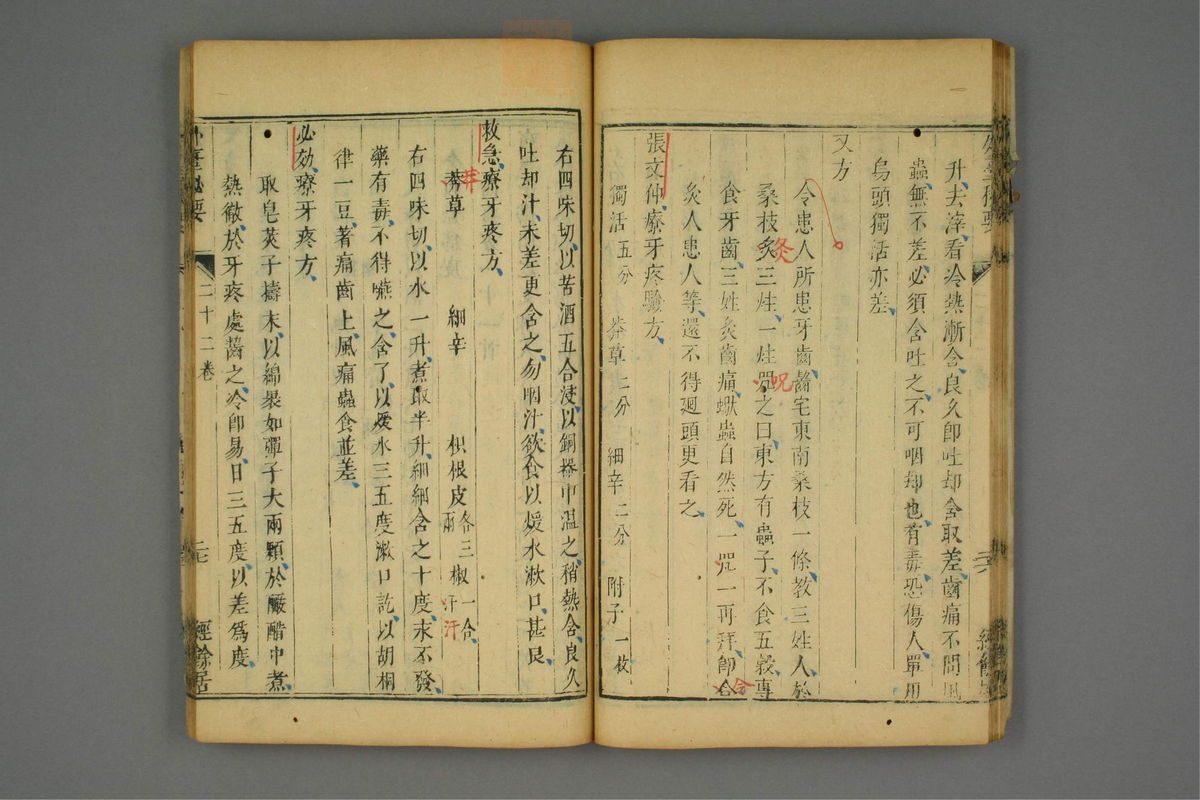 升去滓看冷熱漸含良久卽吐却含取差齒痛不問風
蟲無不差必須含吐之不可咽却也有毒恐傷人單用
烏頭獨活亦差
又方
令患人所患牙齒齧宅東南桑枝一條教三姓人於
桑枝炙三炷一炷咒之曰東方有蟲子不食五穀專
灸
呪
食牙齒三姓灸齒痛蠍蟲自然死一咒一再拜卽令
令
灸人患人等還不得迴頭更看之
張文仲療牙疼驗方
獨活五分 莽草二分 細辛二分 附子一枚
右四味切以苦酒五合浸以銅器中溫之稍熱含良久
吐却汁未差更含之勿咽汁欲食以煖水漱口甚良
救急療牙疼方
莽草 細辛 枳根皮各三兩 椒一合汗
莽
汗
右四味切以水一升煮取半升細細含之十度末不發
藥有毒不得嚥之含了以煖水三五度漱口訖以胡桐
律一豆著痛齒上風痛蟲食並差
必効療牙疼方
取皂莢子擣末以綿裹如彈子大兩顆於釅醋中煮
熱徹於牙疼處齧之冷卽易日三五度以差爲度
外臺必要 二十二卷 二七 經餘居